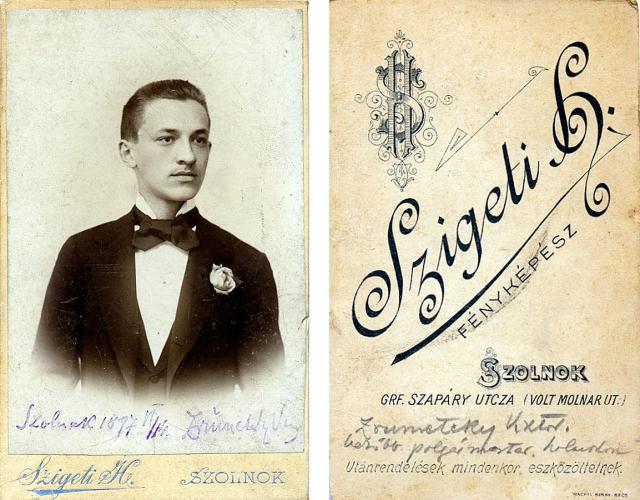 Szolnok 1897 VI/14.
Szigeti H.
SZOLNOK
SH
Szigeti H.
FÉNYKÉPÉSZ
SZOLNOK
GRF. SZAPÁRY UTCZA (VOLT MOLNAR UT.)
polgármester
Utánrendelések mindenkor eszközöltetnek.